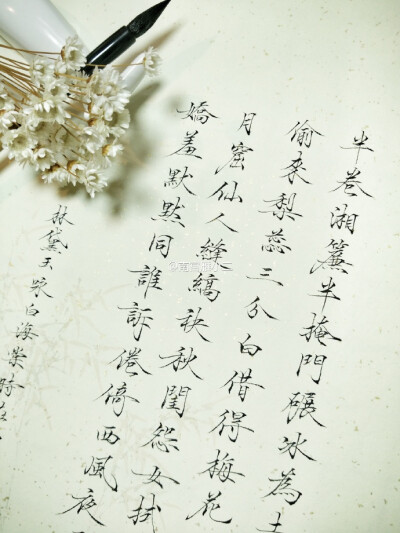 半卷湘簾半掩門碾冰為土
偷來梨蕊三分白借得梅花
月窟仙人縫縞袂秋閨怨女拭
嬌羞默默同誰訴倦倚西風夜
林黛玉詠白海棠時在